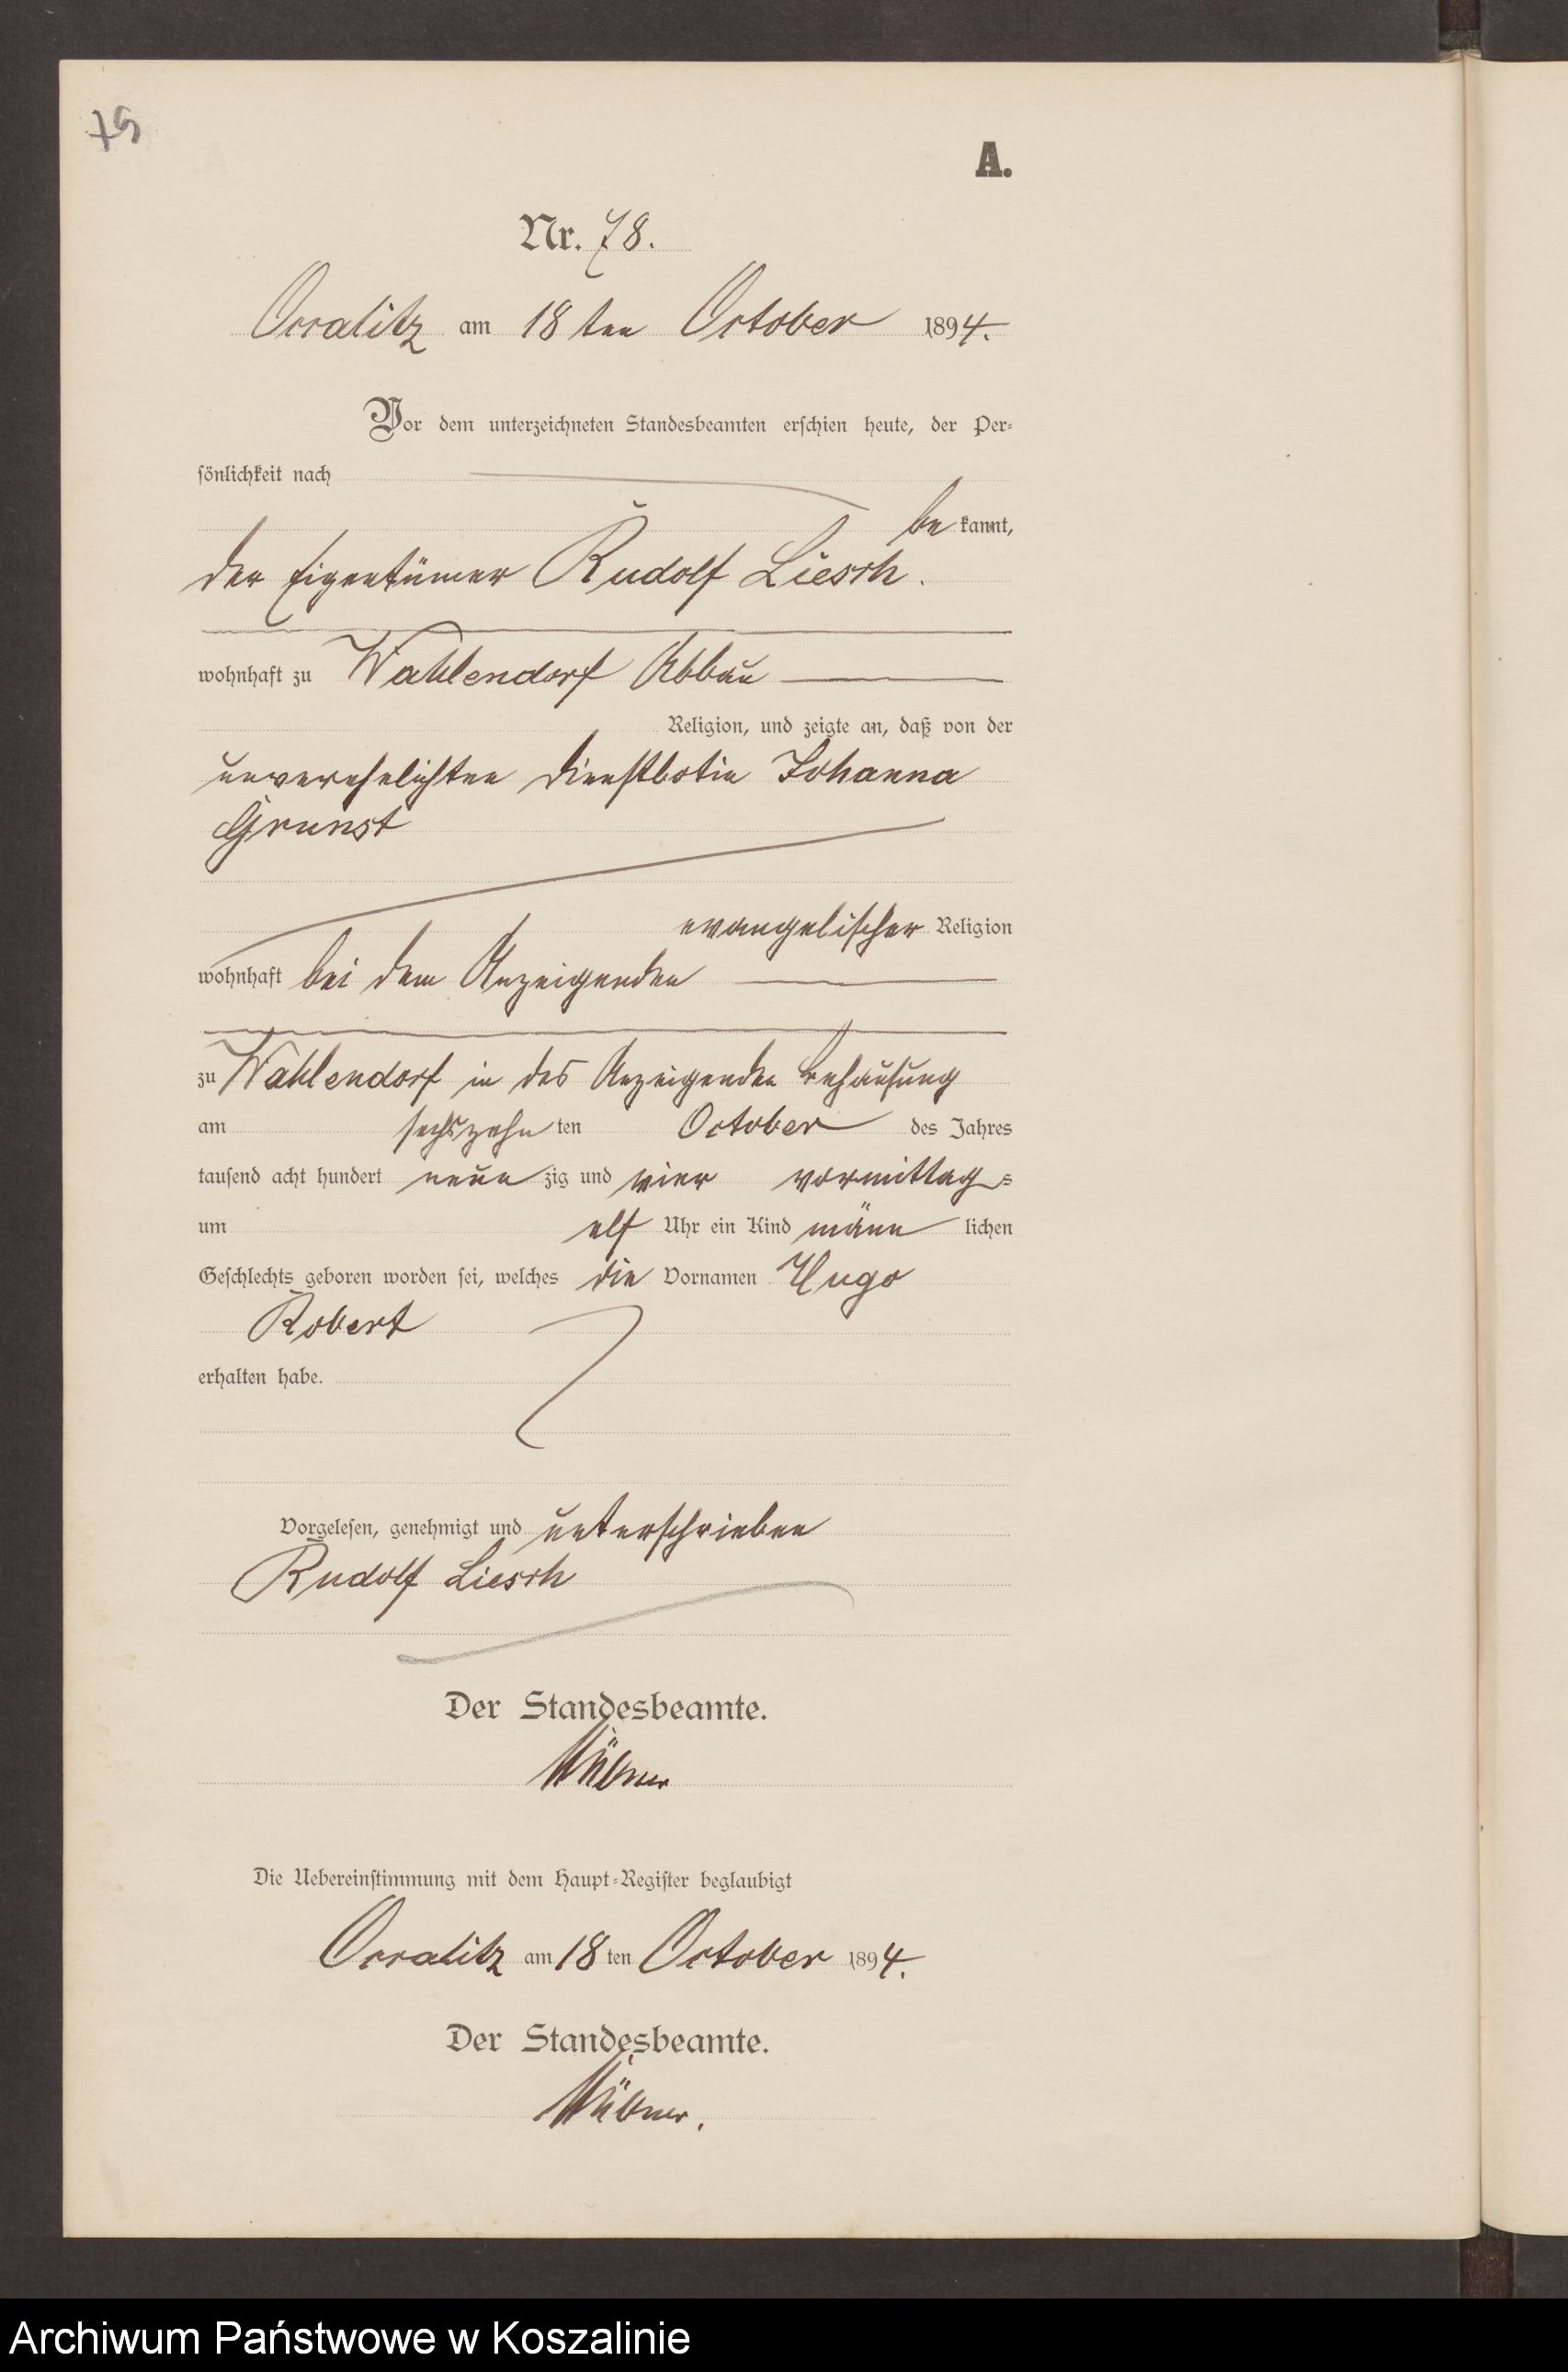 79
A.
Nr. 78.
Occalitz am 18 ten October 1894.
Vor dem unterzeichneten Standesbeamten erschien heute, der Per-
sönlichkeit nach
be kannt,
der Eigentümer Rudolf Liesch.
wohnhaft zu Wahlendorf Abbau
Religion, und zeigte an, daß von der
unverehelichten Dienstbotin Johanna
Grunst
evangelischer Religion
wohnhaft bei dem Anzeigenden
zu Wahlendorf in des Anzeigenden Behausung
am sechszehn ten October des Jahres
tausend acht hundert neun zig und vier vormittag s
um elf Uhr ein Kind männ lichen
Geschlechts geboren worden sei, welches die Vornamen Hugo
Robert
erhalten habe.
Vorgelesen, genehmigt und unterschrieben
Rudolf Liesch
Der Standesbeamte.
Hübner
Die Uebereinstimmung mit dem Haupt-Register beglaubigt
Occalitz am 18 ten October 1894.
Der Standesbeamte.
Hübner.
Archiwum Państwowe w Koszalinie